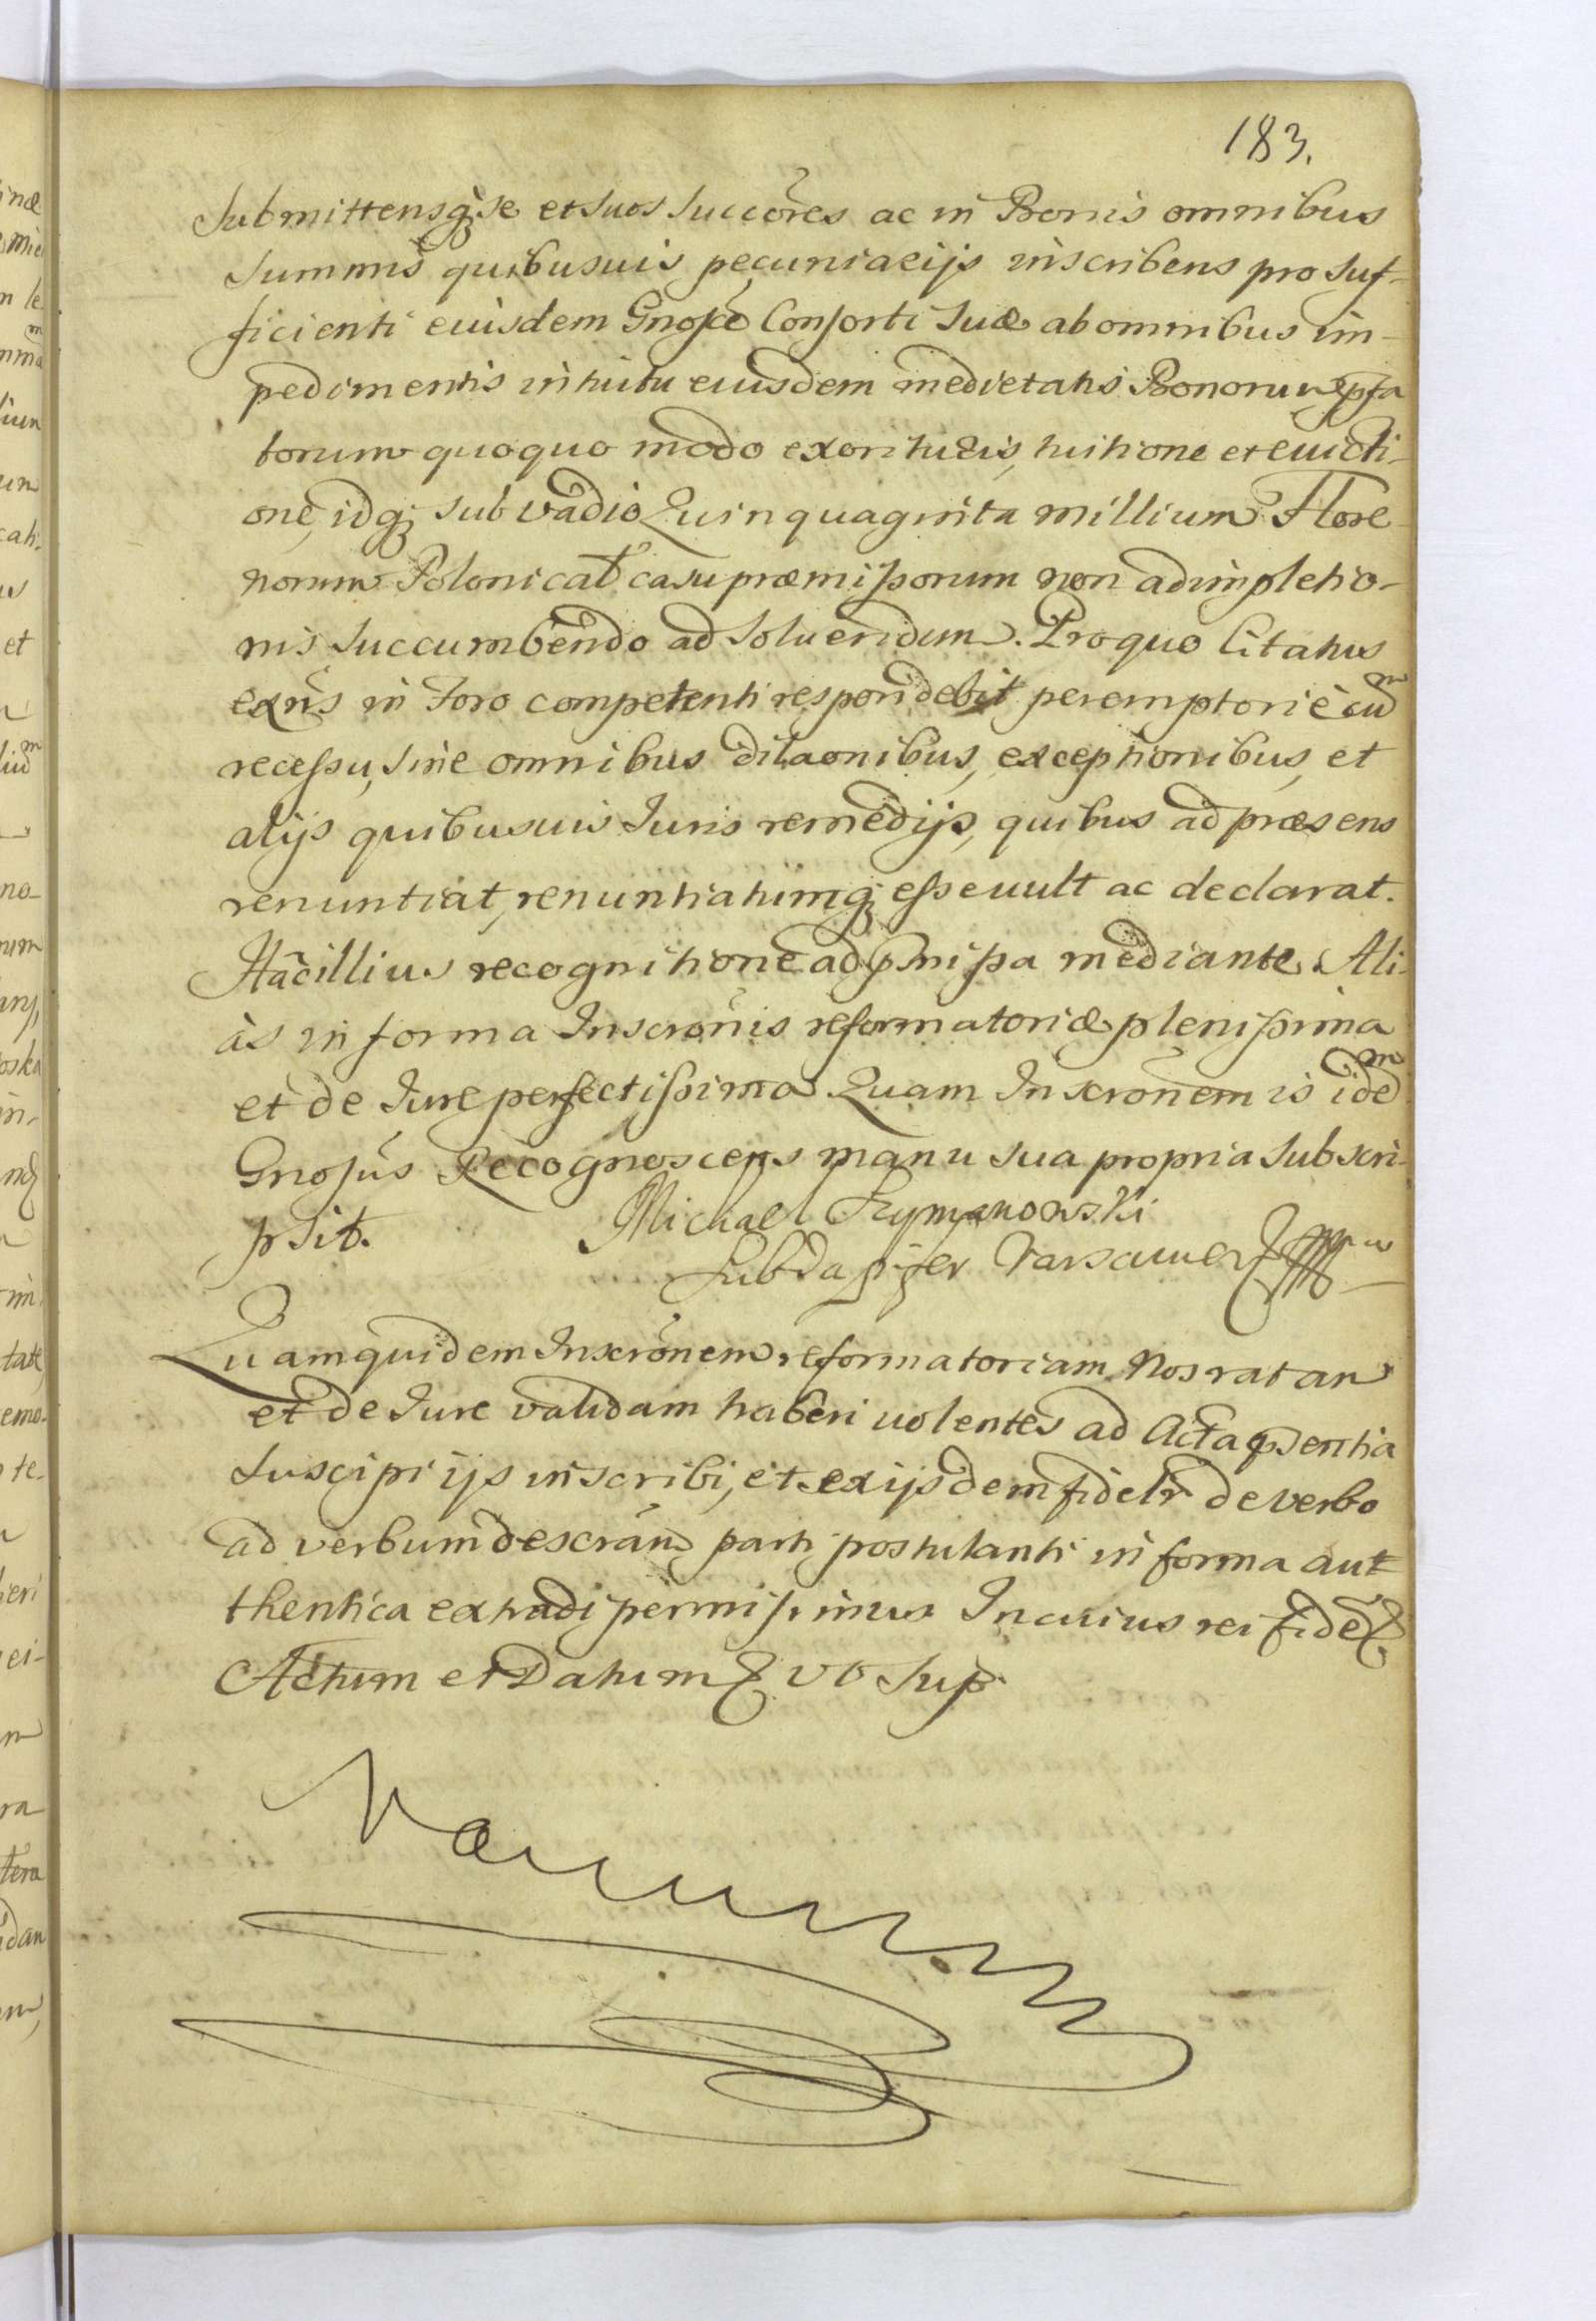 183.
Submittensq; se et suos Succōres ac in Bonis omnibus
Summis quibusuis pecuniarijs inscribens pro suf-
ficienti eiusdem Gnosæ Consorti suæ ab omnibus im-
pedimentis intuitu eiusdem medietatis Bonorum pfa
torum quoquo modo exorituris, tuitione et euicti-
one, idq; sub vadio Quinquaginta millium Flore
norum Polonical casu præmissorum non adimpletio-
nis succumbendo ad soluendum. Pro quo Citatus
exns in Foro competenti respondebit peremptorie cum
recessu, sine omnibus dilaonibus, exceptionibus, et
alijs quibusuis Iuris remedijs, quibus ad præsens
renuntiat, renuntiatumq; esse uult ac declarat.
Hac illius recognitione ad pmissa mediante. Ali-
às in forma Inscronis reformatoriæ plenissima
et de Iure perfectissima Quam Inscronem is idem
Gnosus Recognoscens manu sua propria subscri-
psit. Michael Szymanowski
Subdapifer Varsauien
Quamquidem Inscronem reformatoriam Nos ratam
et de Iure validam haberi uolentes ad Acta psentia
suscipi ijs inscribi, et ex ijsdem fidelr de verbo
ad verbum descran parti postulanti in forma aut
thentica extradi permisimus In cuius rei fidē
Actum et Datum ut sup